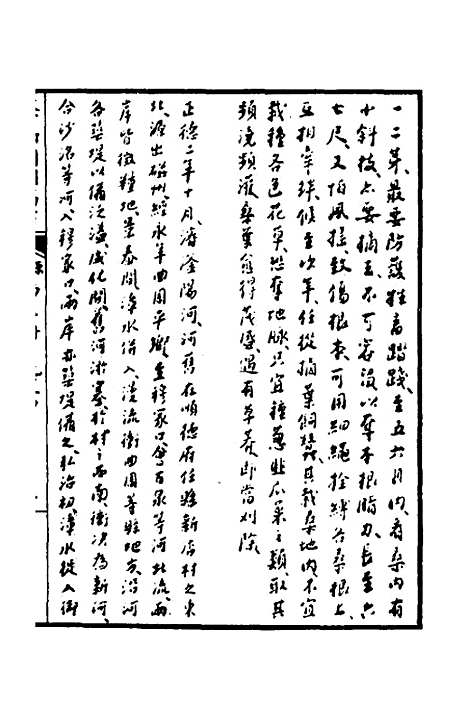 一二年、最要防護牲畜蹈踐、至五六月内、看桑内有
小斜枝、亦要摘去、不可容沒、以奪本根脂力、長至六
七尺、又怕風搖致傷根本、可用細繩拴縛各桑根上、
互相牽絆、候至次年、任從摘葉飼蠶、其栽桑地内、不宜
栽種各色花草、恐奪地脉、只宜種葱韭瓜菜之類、取其
頻澆頻灌、桑葉愈得茂盛、遇有草莽、即當刈除、
正德二年十月、濬滏陽河、河舊在順德府任縣新店村之東
北、源出磁州、經永年曲周平鄉、至穆家口、會百泉等河北流、兩
岸皆徵糧地、景泰間、漳水併入、漫流衝曲周等縣地方、沿河
各築堤以備泛溢、成化間、舊河淤塞、於村之西南、衝決為新河、
合沙洺等河、入穆家口、兩岸亦築堤備之、弘治初、漳水從入御